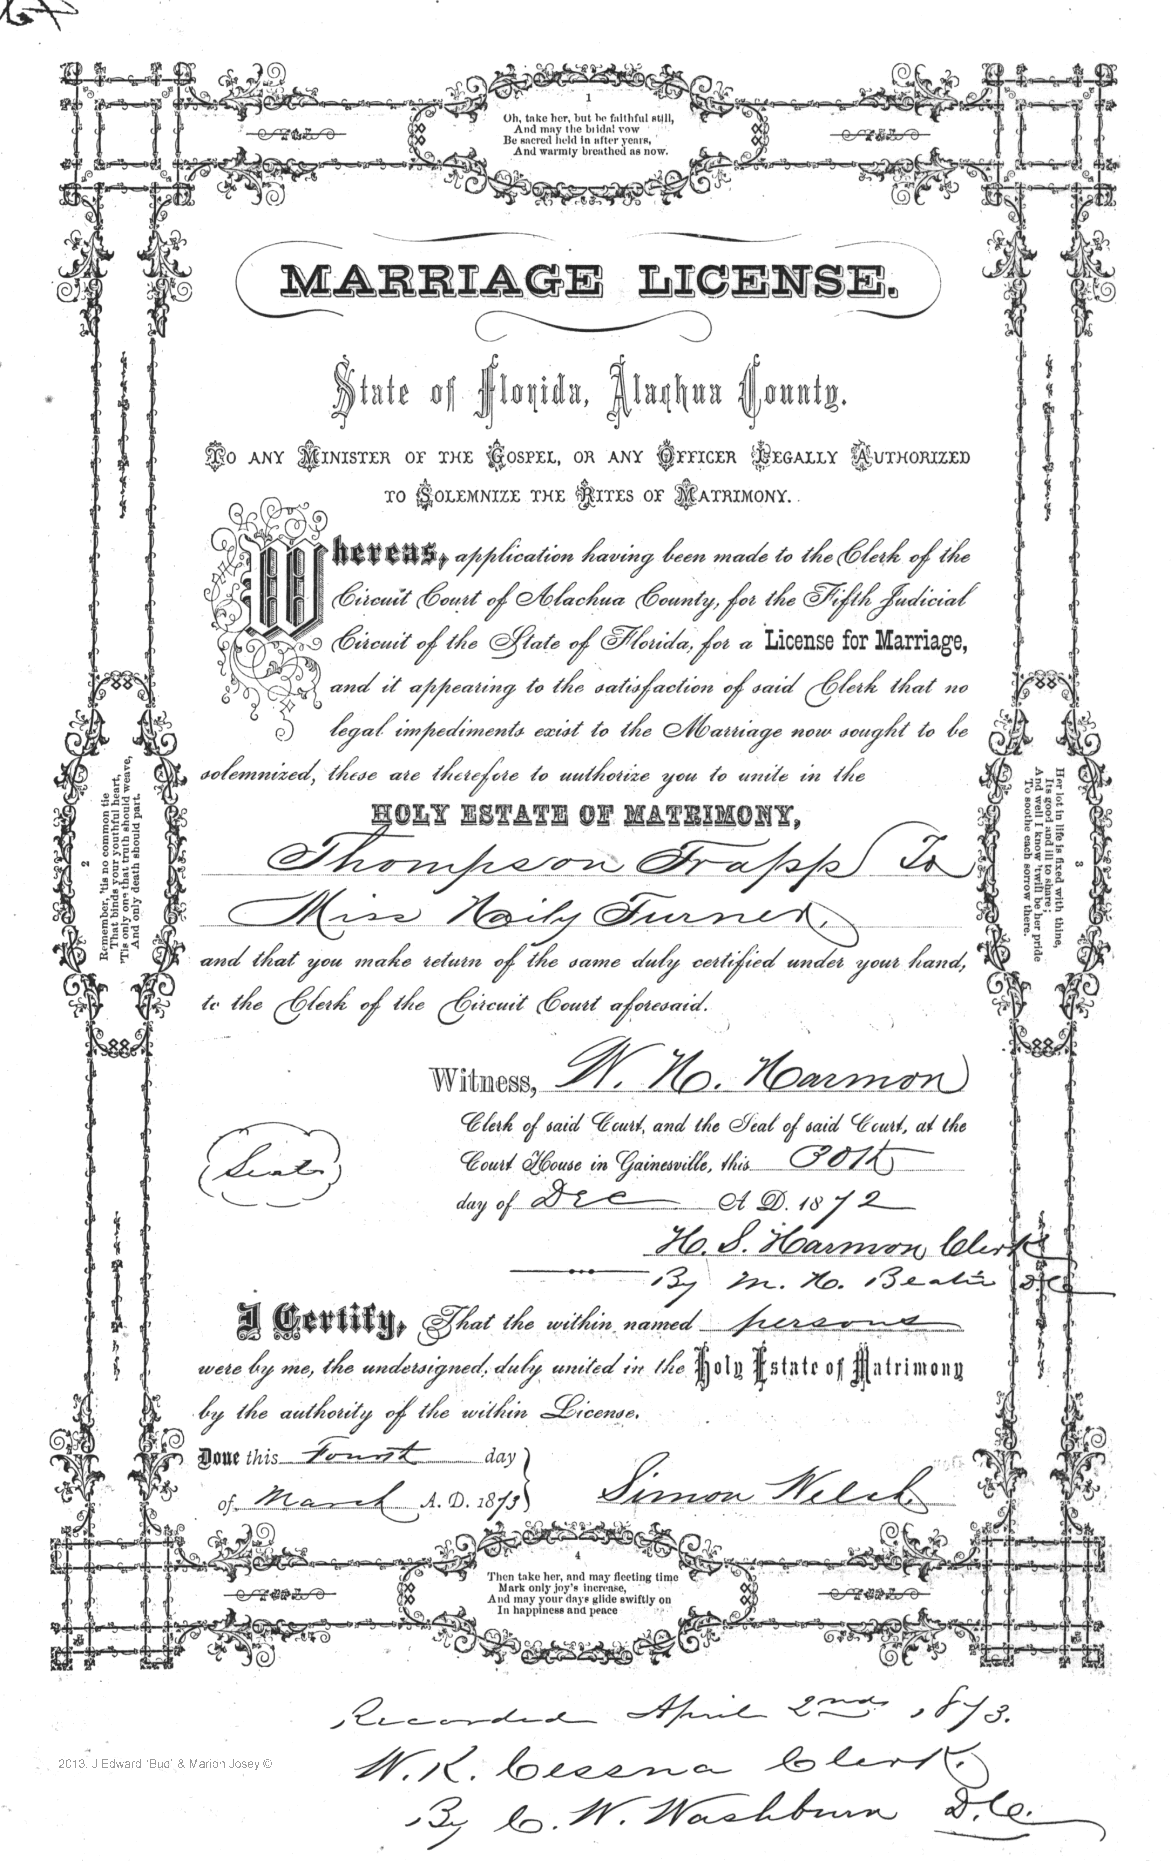 1
Oh, take her, but be faithful still,
And may the bridal vow
Be sacred held in after years,
And warmly breathed as now.
MARRIAGE LICENSE.
State of Florida, Alachua County.
To any Minister of the Gospel, or any Officer Legally Authorized
to Solemnize the Rites of Matrimony.
Whereas, application having been made to the Clerk of the
Circuit Court of Alachua County, for the Fifth Judicial
Circuit of the State of Florida, for a License for Marriage,
and it appearing to the satisfaction of said Clerk that no
legal impediments exist to the Marriage now sought to be
solemnized, these are therefore to authorize you to unite in the
HOLY ESTATE OF MATRIMONY,
Thompson Trapp To
Miss Turner,
and that you make return of the same duly certified under your hand,
to the Clerk of the Circuit Court aforesaid.
2
Remember, 'tis no common tie
That binds your youthful heart,
'Tis only one that truth should weave,
And only death should part.
3
Her lot in life is fixed with thine,
Its good and ill to share;
And well I know 'twill be her pride
To soothe each sorrow there.
Witness, Harmon
Clerk of said Court, and the Seal of said Court, at the
Court House in Gainesville, this 30th
day of Dec A D. 1872
Seal
H. S. Harmon Clerk
By M. H. D C
I Certify, That the within named persons
were by me, the undersigned, duly united in the Holy Estate of Matrimony
by the authority of the within License.
Done this Fourth day
of March A. D. 1873
Simon Welch
4
Then take her, and may fleeting time
Mark only joy's increase,
And may your days glide swiftly on
In happiness and peace
Recorded April 2nd, 1873.
W. K. Cessna Clerk.
By C. W. Washburn D.C.
2013. J Edward 'Bud' & Marion Josey ©